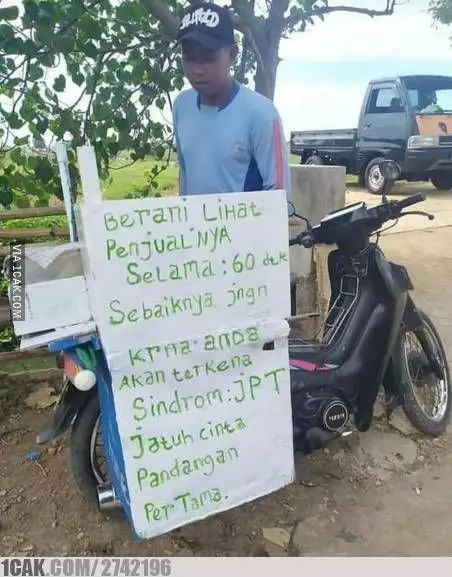 BeraNi LiHat
PeNjuaL'NYA
SeLama : 60 detik
Sebaiknya jngn
krna anda
Akan terkena
Sindrom : JPT
Jatuh cinta
Pandangan
PerTama.
VIA 1CAK.COM
1CAK.COM/2742196